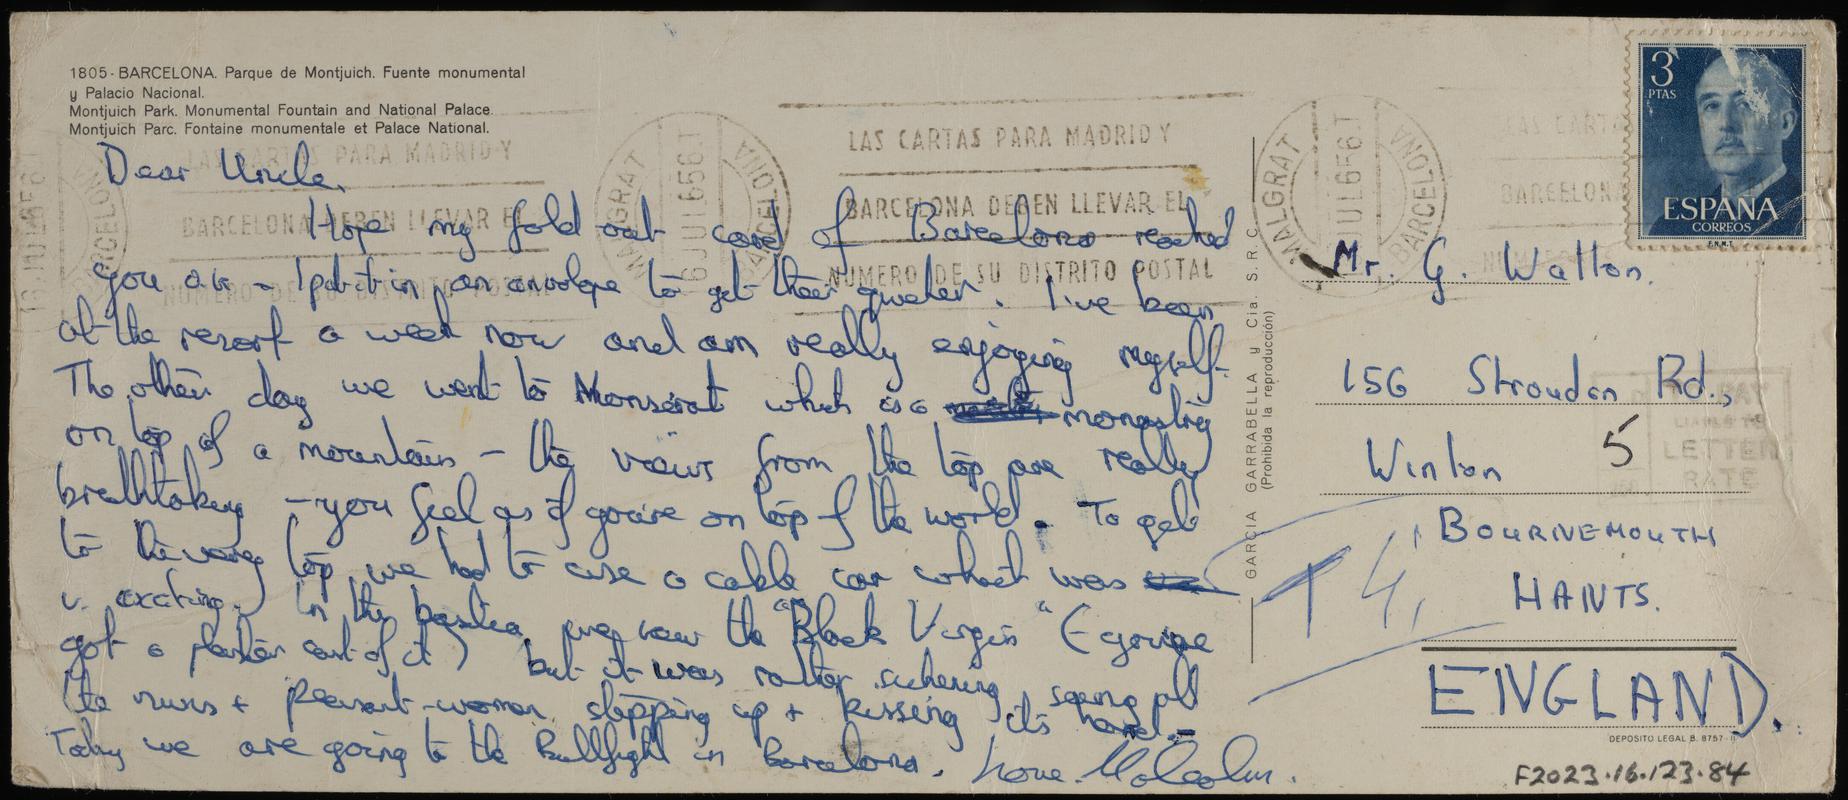 1805 - BARCELONA. Parque de Montjuich. Fuente monumental
y Palacio Nacional.
Montjuich Park. Monumental Fountain and National Palace.
Montjuich Parc. Fontaine monumentale et Palace National.
LAS CARTAS PARA MADRID Y
BARCELONA DEBEN LLEVAR EL
NUMERO DE SU DISTRITO POSTAL
MALGRAT
BARCELONA
3
PTAS
ESPAÑA
CORREOS
F.N.M.T
Dear Uncle,
Hope my fold out card of Barcelona reached
you ok - I put it in an envelope to get there quicker. I've been
at the resort a week now and am really enjoying myself.
The other day we went to Monserat which is a monastry
on top of a mountain - the views from the top are really
breathtaking - you feel as if you're on top of the world. To get
to the very top we had to use a cable car which was
v. exciting. In the basilica we saw the "Black Virgin" (- you've
got a plaster cast of it) but it was rather sickening, seeing all
the nuns + peasant-women stepping up + kissing its hand.-
Today we are going to the Bullfight in Barcelona. Love. Malcolm.
GARCIA GARRABELLA y Cia. S. R. C.
(Prohibida la reproducción)
Mr. G. Walton.
156 Stroudon Rd.,
Winton 5
BOURNEMOUTH
HANTS.
ENGLAND.
LETTER
RATE
T 4,
DEPOSITO LEGAL B. 8757 - II
F2023.16.123.84